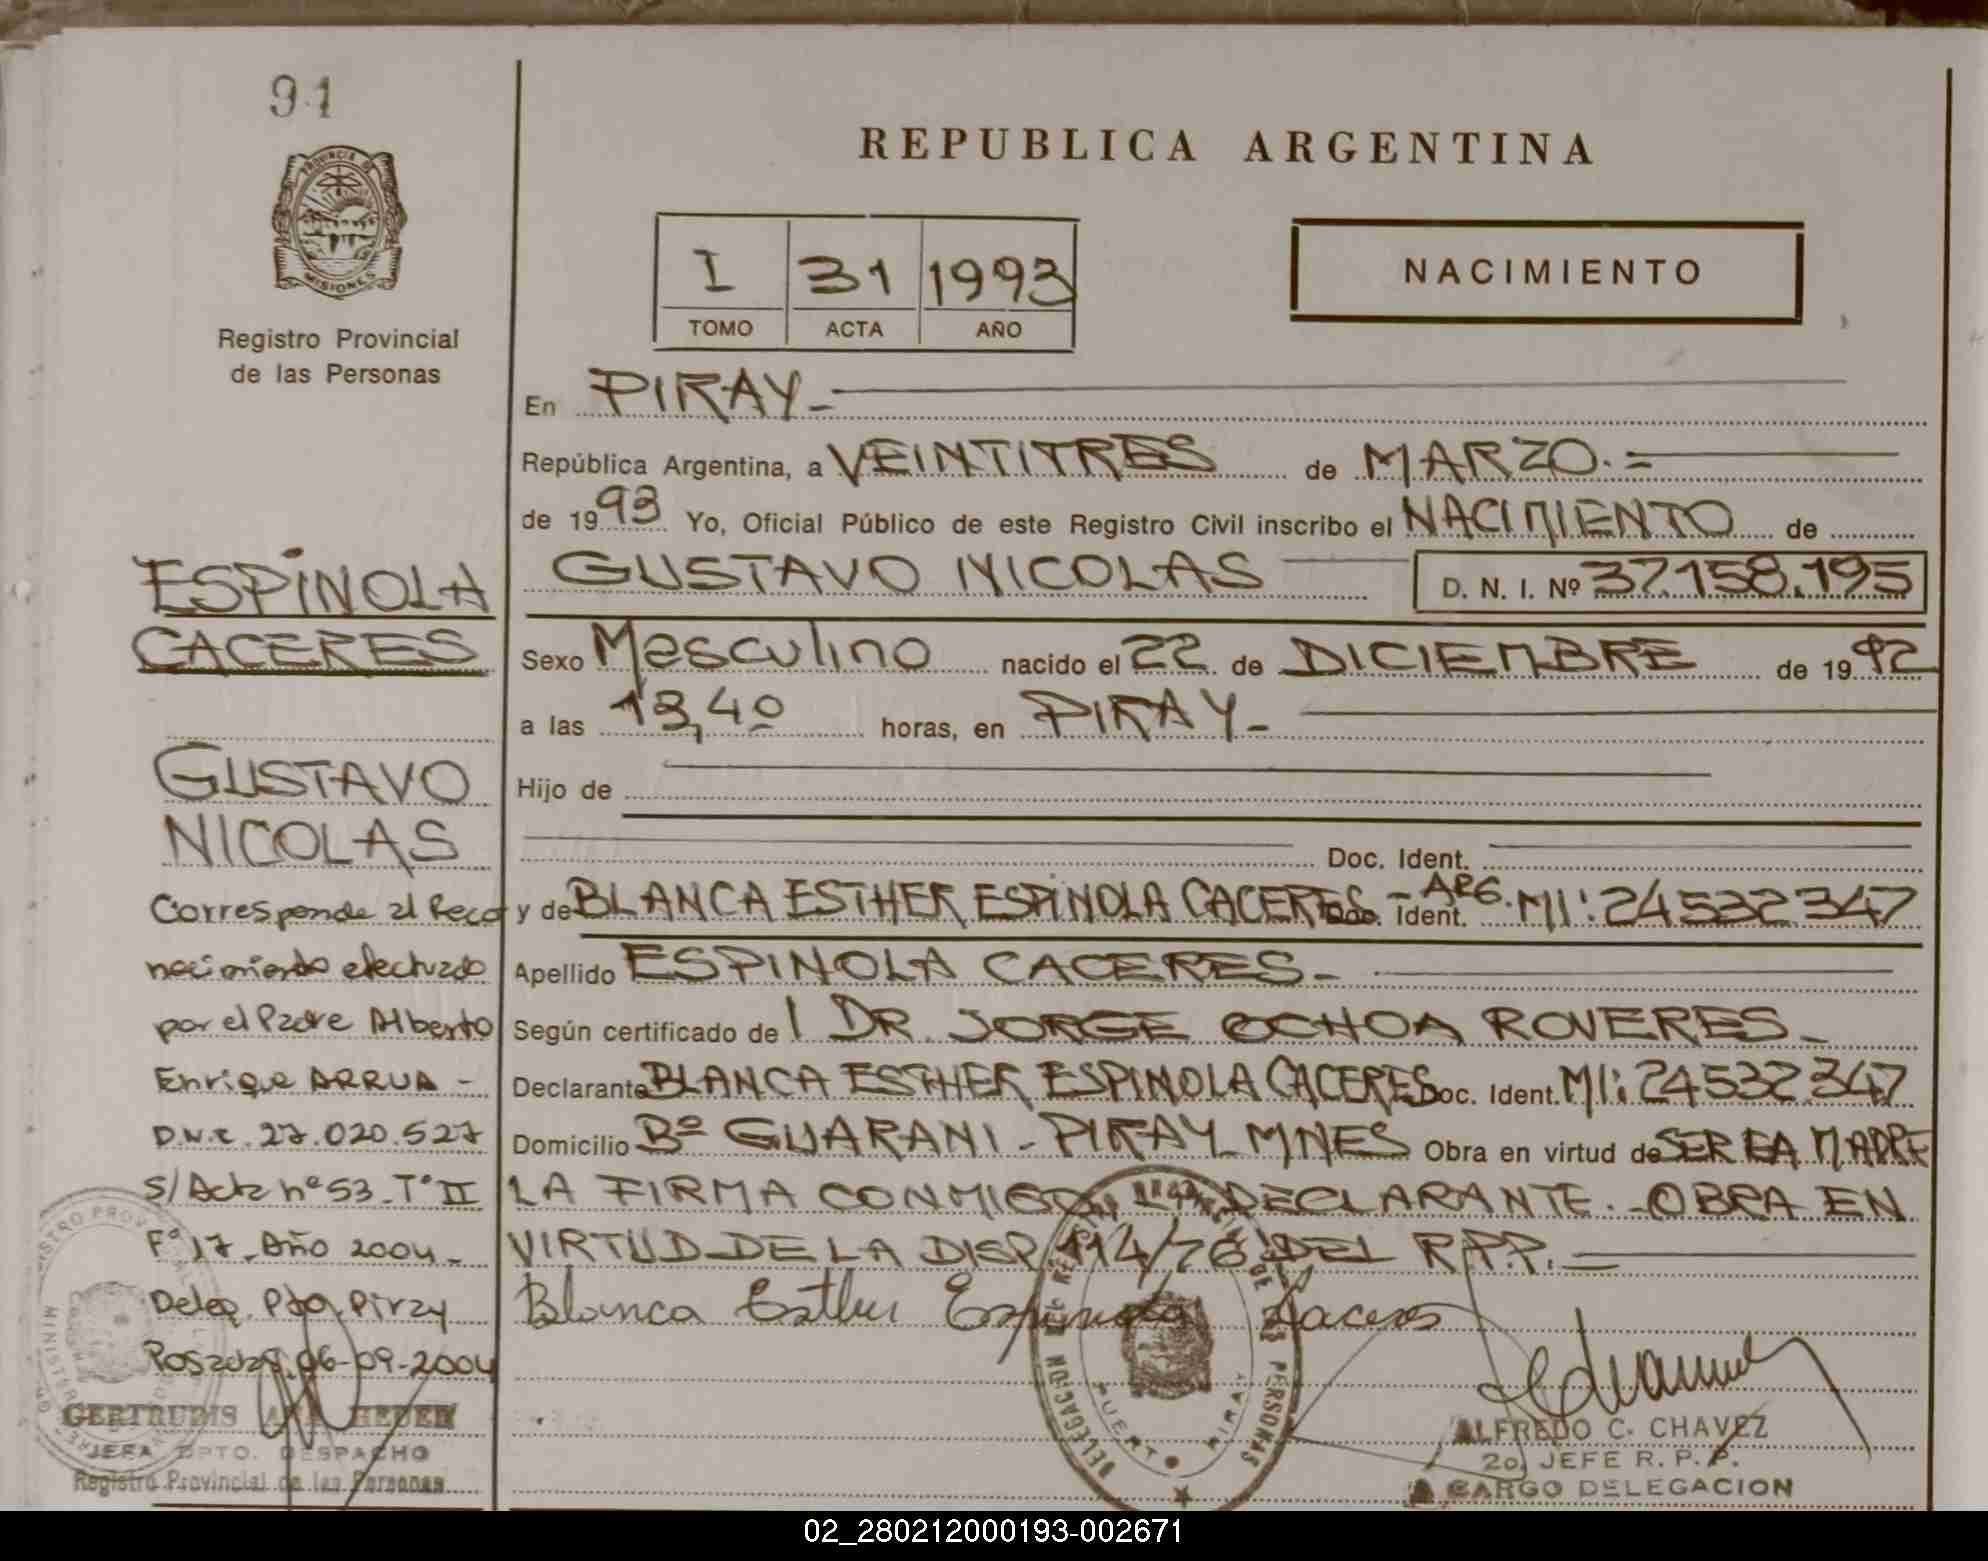 91
PROVINCIA DE
MISIONES
Registro Provincial
de las Personas
ESPINOLA
CACERES
GUSTAVO
NICOLAS
Corresponde al Reco
nocimiento efectuado
por el Padre Alberto
Enrique ARRUA -
D.N.I. 27.020.527
S/ Acta nº 53. Tº II
Fº 17 - Año 2004 -
Deleg. Pto. Piray
Posadas, 06-09-2004
GERTRUDIS HEUER
JEFA DPTO. DESPACHO
Registro Provincial de las Personas
REPUBLICA ARGENTINA
I 31 1993
TOMO ACTA AÑO
NACIMIENTO
En PIRAY -
República Argentina, a VEINTITRES de MARZO. =
de 1993 Yo, Oficial Público de este Registro Civil inscribo el NACIMIENTO de
GUSTAVO NICOLAS D. N. I. Nº 37.158.195
Sexo Masculino nacido el 22 de DICIEMBRE de 1992
a las 13,40 horas, en PIRAY -
Hijo de
Doc. Ident.
y de BLANCA ESTHER ESPINOLA CACERES - ARG. Doc. Ident. MI: 24532347
Apellido ESPINOLA CACERES -
Según certificado de l DR. JORGE OCHOA ROVERES -
Declarante BLANCA ESTHER ESPINOLA CACERES Doc. Ident. MI: 24532.347
Domicilio Bº GUARANI - PIRAY MNES Obra en virtud de SER LA MADRE
LA FIRMA CONMIGO LA DECLARANTE. - OBRA EN
VIRTUD DE LA DISP. 114/76 DEL R.P.P. -
Blanca Esther Espinola Caceres
DELEGACION DEL REGISTRO PROVINCIAL DE LAS PERSONAS
PUERTO PIRAY
ALFREDO C. CHAVEZ
2o. JEFE R. P. P.
A CARGO DELEGACION
02_280212000193-002671